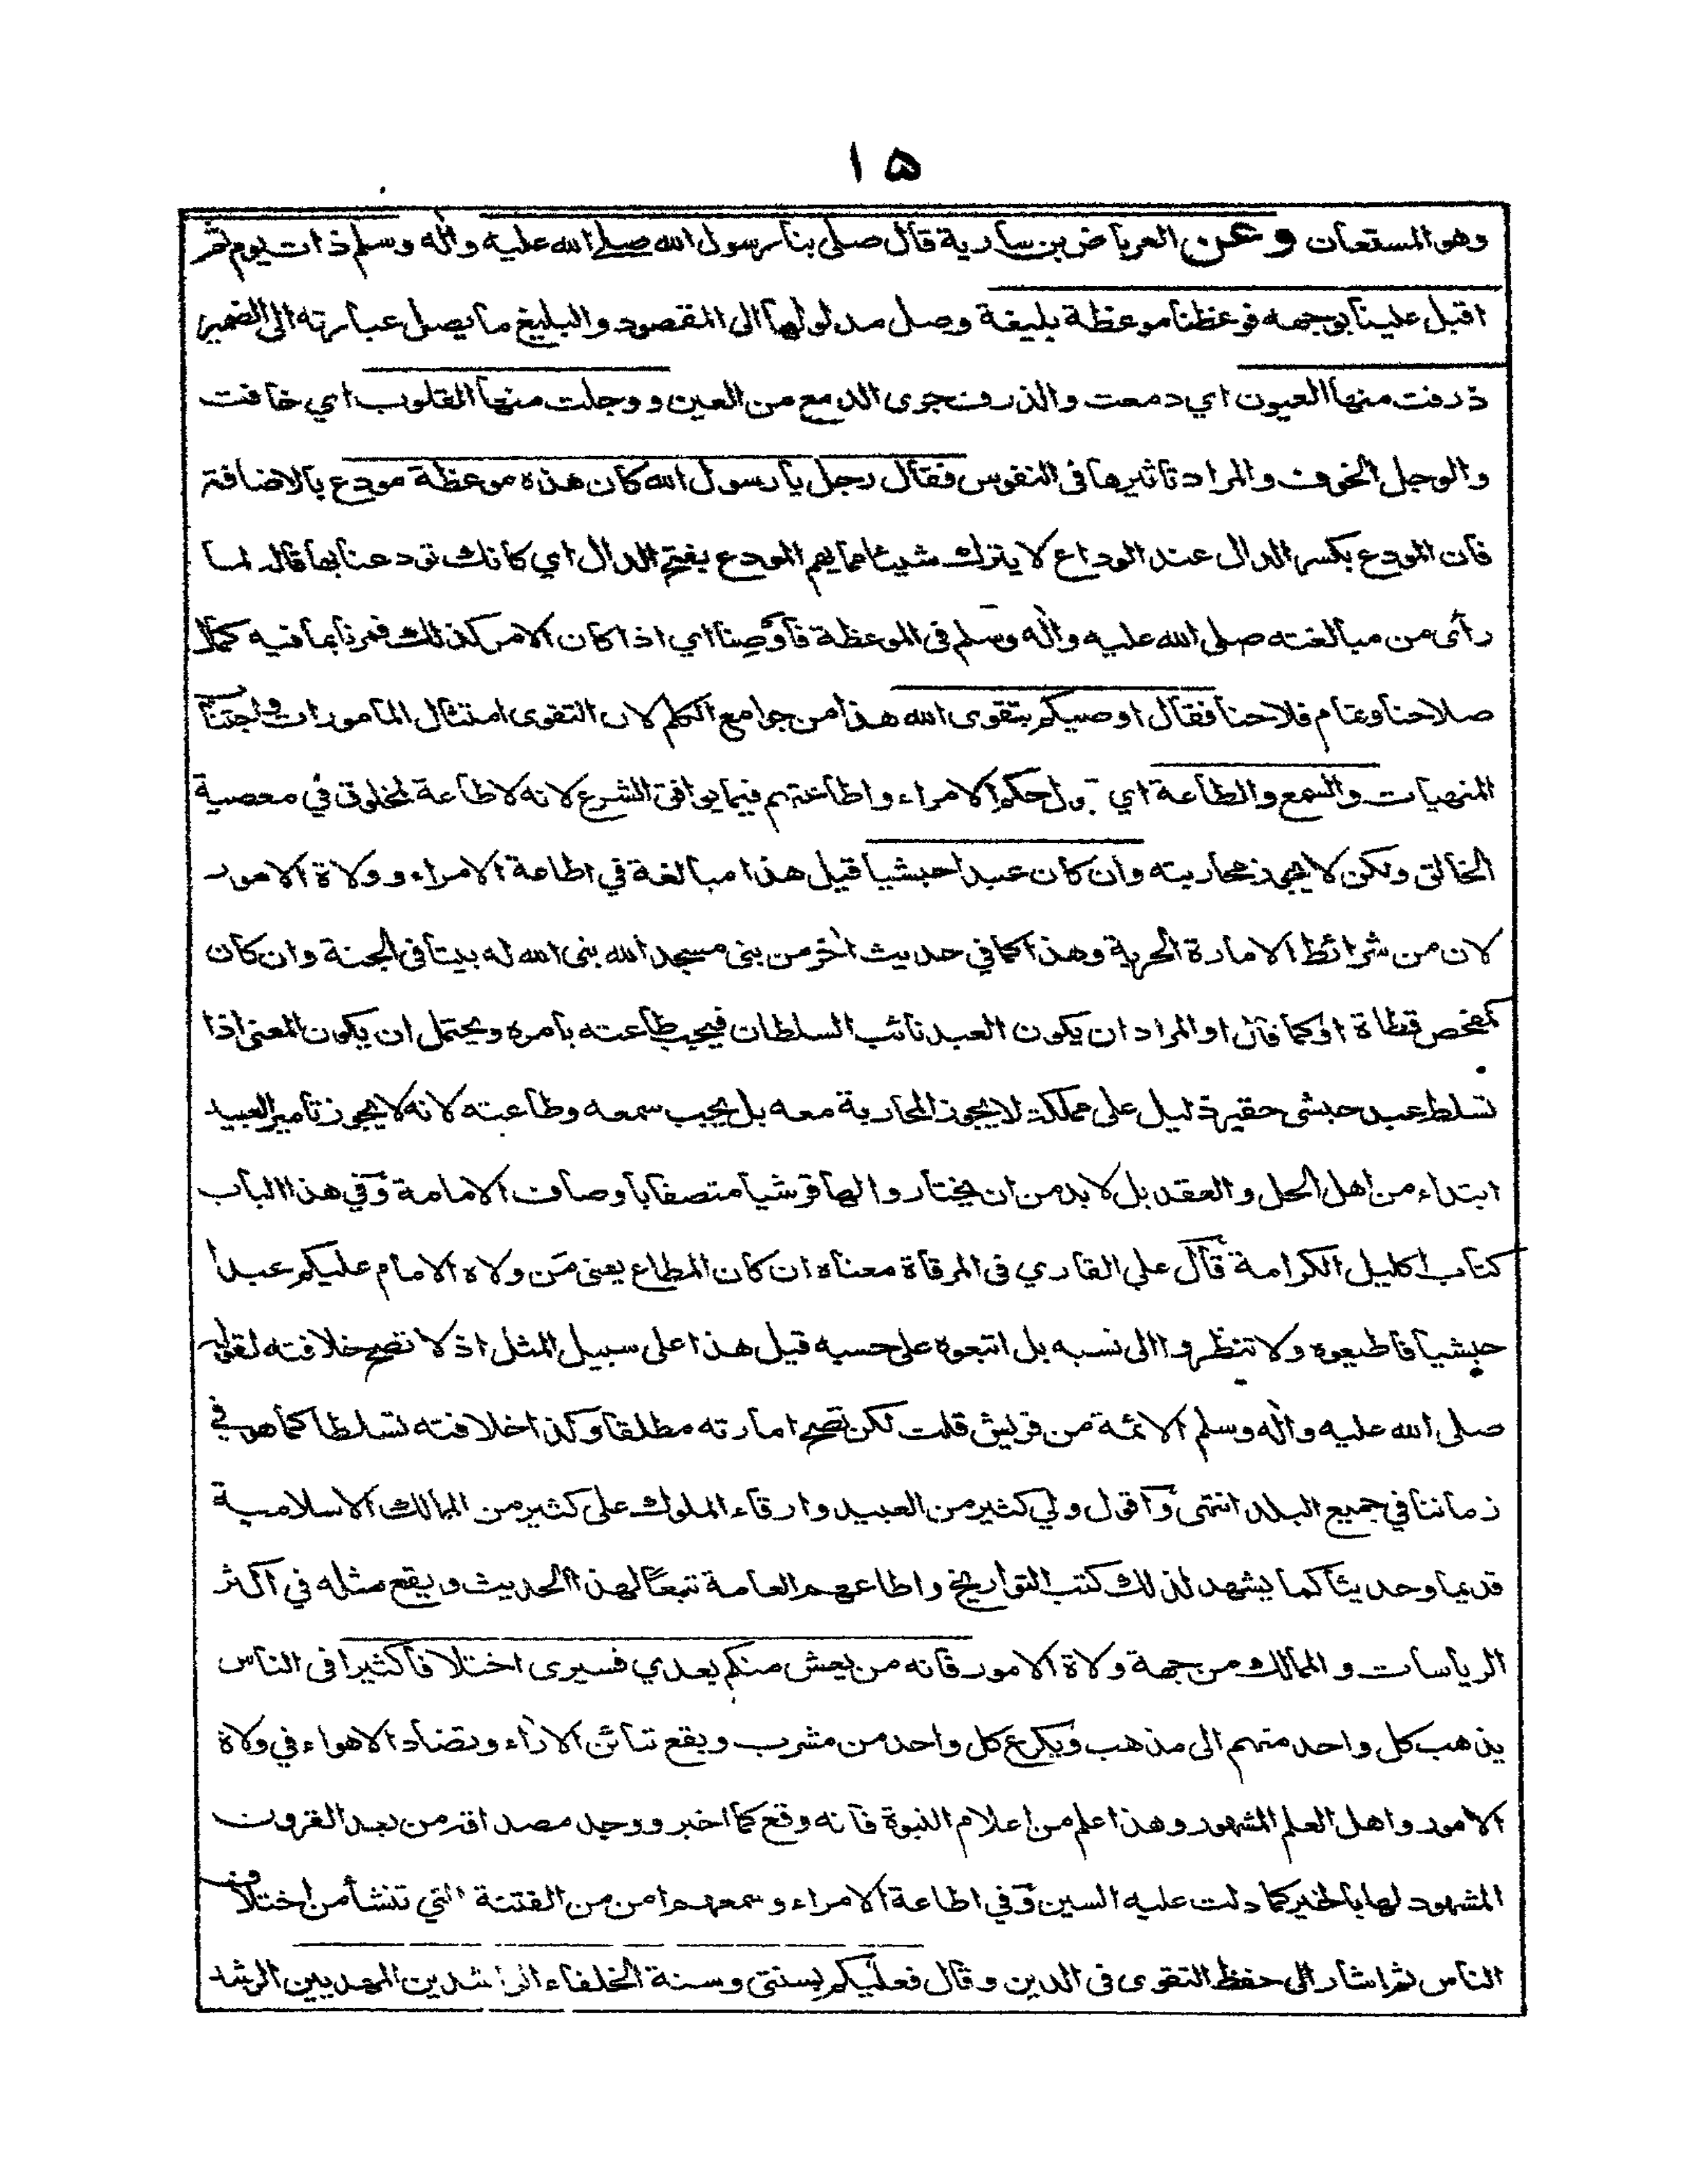 ١٥
وهو المستعان وعن العرباض بن سارية قال صلى بنا رسول الله صلى الله عليه وآله وسلم ذات يوم ثم
اقبل علينا بوجهه فوعظنا موعظة بليغة وصل مدلولها الى المقصود والبليغ ما يصل عبارته الى الضمير
ذرفت منها العيون اي دمعت والذرف جرى الدمع من العين ووجلت منها القلوب اي خافت
والوجل الخوف والمراد تاثيرها فى النفوس فقال رجل يا رسول الله كان هذه موعظة مودع بالاضافة
فان المودع بكسر الدال عند الوداع لا يترك شيئا مما يهم المودع بفتح الدال اي كانك تودعنا بها قال لما
رأى من مبالغته صلى الله عليه وآله وسلم فى الموعظة فأوصِنا اي اذا كان الامر كذلك فمرنا بما فيه كمال
صلاحنا وتمام فلاحنا فقال اوصيكم بتقوى الله هذا من جوامع الكلم لان التقوى امتثال المامورات واجتناب
المنهيات والسمع والطاعة اي قبول حكم الامراء واطاعتهم فيما يوافق الشرع لانه لا طاعة لمخلوق في معصية
الخالق ولكن لا يجوز محاربته وان كان عبدا حبشيا قيل هذا مبالغة في اطاعة الامراء وولاة الامور
لان من شرائط الامارة الحرية وهذا كما في حديث اخر من بنى مسجدا لله بنى الله له بيتا فى الجنة وان كان
كمفحص قطاة اوكما قال او المراد ان يكون العبد نائب السلطان فيجب طاعته بامره ويحتمل ان يكون المعنى اذا
تسلط عبد حبشى حقير ذليل على مملكة لا يجوز المحاربة معه بل يجب سمعه وطاعته لانه لا يجوز تأمير العبيد
ابتداء من اهل الحل والعقد بل لابد من ان يختاروا لها قرشيا متصفا باوصاف الامامة وفي هذا الباب
كتاب اكليل الكرامة قال علي القاري فى المرقاة معناه ان كان المطاع يعنى من ولاه الامام عليكم عبدا
حبشيا فاطيعوه ولا تنظروا الى نسبه بل اتبعوه على حسبه قيل هذا على سبيل المثل اذ لا تصح خلافته لقوله
صلى الله عليه وآله وسلم الائمة من قريش قلت لكن تصح امارته مطلقا وكذا خلافته تسلطا كما هو في
زماننا في جميع البلاد انتهى واقول ولي كثير من العبيد وارقاء الملوك على كثير من الممالك الاسلامية
قديما وحديثا كما يشهد لذلك كتب التواريخ واطاعهم العامة تبعًا لهذا الحديث ويقع مثله في اكثر
الرياسات والممالك من جهة ولاة الامور فانه من يعش منكم بعدي فسيرى اختلافا كثيرا فى الناس
يذهب كل واحد منهم الى مذهب ويكرع كل واحد من مشرب ويقع تبائن الاراء وتضاد الاهواء في ولاة
الامور واهل العلم المشهور وهذا علم من اعلام النبوة فانه وقع كما اخبر ووجد مصداقه من بعد القرون
المشهود لها بالخير كما دلت عليه السين وفي اطاعة الامراء وسمعهم امن من الفتنة التي تنشأ من اختلاف
الناس ثم اشار الى حفظ التقوى فى الدين وقال فعليكم بسنتى وسنة الخلفاء الراشدين المهديين الرشد